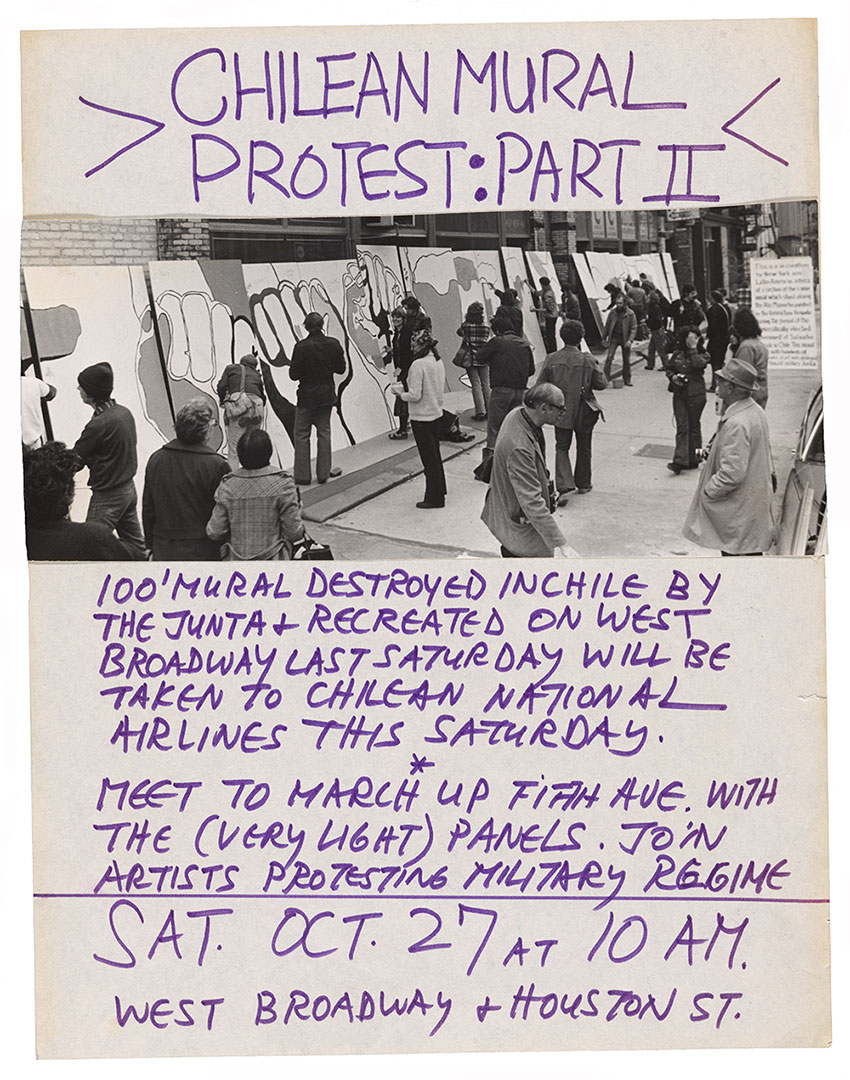 CHILEAN MURAL
PROTEST: PART II
This is a recreation
by New York and
100' MURAL DESTROYED IN CHILE BY
THE JUNTA & RECREATED ON WEST
BROADWAY LAST SATURDAY WILL BE
TAKEN TO CHILEAN NATIONAL
AIRLINES THIS SATURDAY.
*
MEET TO MARCH UP FIFTH AVE. WITH
THE (VERY LIGHT) PANELS. JOIN
ARTISTS PROTESTING MILITARY REGIME
SAT. OCT. 27 AT 10 AM.
WEST BROADWAY & HOUSTON ST.